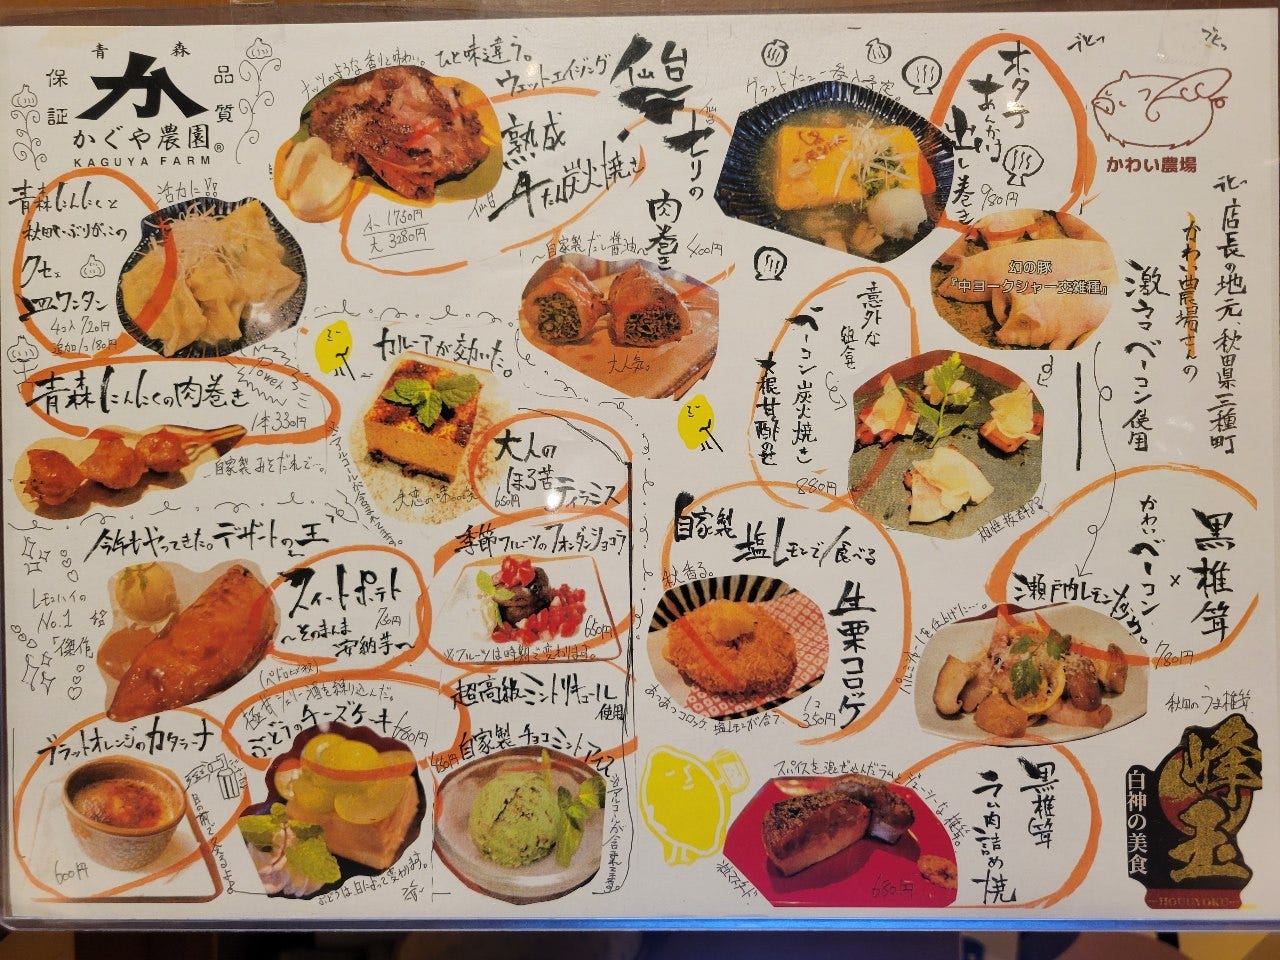 青森
保証
品質
かぐや農園®
KAGUYA FARM
青森にんにくと
秋田いぶりがっこの
クセェ
皿ワンタン
4コ入720円
追加1コ180円
活力に!!
ナッツのような香りと味わい。
ひと味違う。
ウェットエイジング
熟成
仙台
牛たん炭火焼き
小 1750円
大 3280円
仙台
せりの
肉巻き
〜自家製だし醤油〜
400円
大人気。
グランドメニュー参入予定。
ホタテ
あんかけ
出し巻き
980円
かわい農場
店長の地元、秋田県三種町
かわい農場さんの
激ウマベーコン使用
幻の豚
『中ヨークシャー交雑種』
意外な
組合せ
ベーコン炭火焼き
大根甘酢のせ
880円
相性抜群!!
青森にんにくの肉巻き
1本330円
自家製みそだれで…。
カルーアが効いた。
大人の
ほろ苦
ティラミス
650円
失恋の味
※アルコールが含まれます。
今年もやってきた。デザートの王
スイートポテト
〜そのまんま
安納芋〜
730円
レモンハイの
No.1
「傑作」
季節フルーツのフォンダンショコラ
660円
※フルーツは時期で変わります。
超高級ミントリキュール
使用
自家製チョコミントアイス
※アルコールが含まれます。
極甘シェリー酒を練り込んだ。
ぶどうのチーズケーキ
680円
ぶどうは日によって変わります。
ブラッドオレンジのカタラーナ
600円
自家製
塩レモンで食べる
生栗コロッケ
秋香る。
1コ
350円
あつあつコロッケ、塩レモンが合う。
黒椎茸
×
かわいベーコン
瀬戸内レモン炒め。
780円
パルミジャーノを仕上げに…。
秋田のうま椎茸
峰玉
白神の美食
HOUGYOKU
黒椎茸
ラム肉詰め焼
スパイスを混ぜ込んだラムとジューシーな椎茸。
粒マスタード
680円